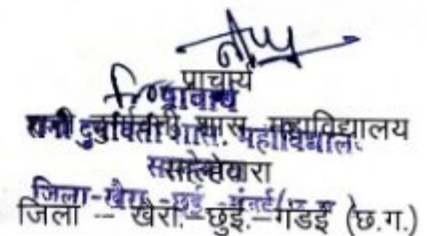 प्राचार्य
रानी दुर्गावती शास. महाविद्यालय
साल्हेवारा
जिला – खैरा.–छुई.–गंडई (छ.ग.)